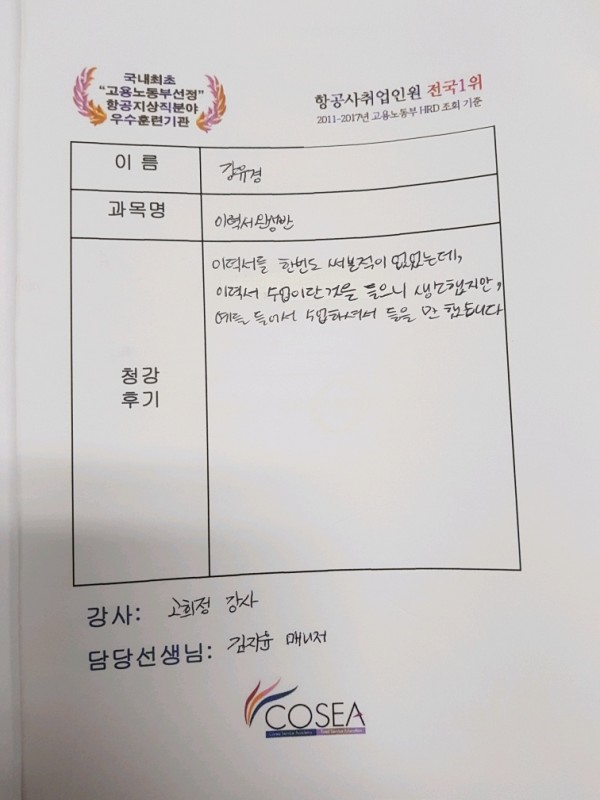 국내최초
"고용노동부선정"
항공지상직분야
우수훈련기관
항공사취업인원 전국1위
2011-2017년 고용노동부 HRD 조회 기준
이 름
강유경
과목명
이력서완성반
청강
후기
이력서를 한번도 써본적이 없었는데,
이력서 수업이란것을 들으니 생소했지만,
예를 들어서 수업하셔서 들을 만 했습니다
강사: 고희정 강사
담당선생님: 김지윤 매니저
COSEA
Korea Service Academy Total Service Education